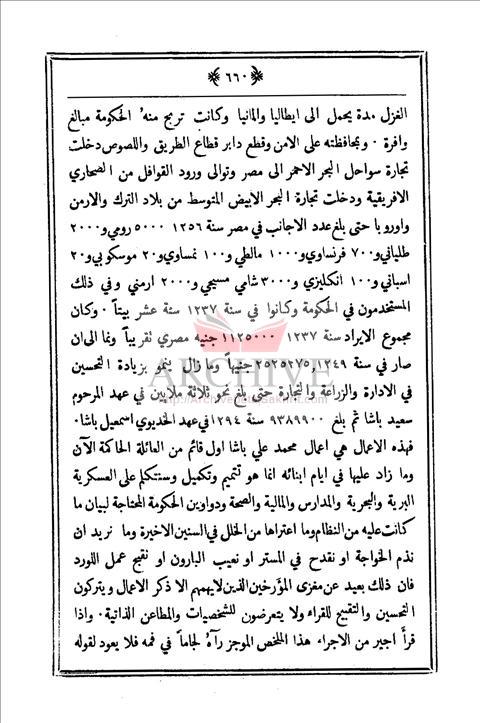 ٦٦٠
الغزل مدة يحمل الى ايطاليا والمانيا وكانت تربح منه الحكومة مبالغ
وافرة . وبمحافظته على الامن وقطع دابر قطاع الطريق واللصوص دخلت
تجارة سواحل البحر الاحمر الى مصر وتوالى ورود القوافل من الصحاري
الافريقية ودخلت تجارة البحر الابيض المتوسط من بلاد الترك والارمن
واوروبا حتى بلغ عدد الاجانب في مصر سنة ١٢٥٦ ٥٠٠٠ رومي و٢٠٠٠
طلياني و٧٠٠ فرنساوي و١٠٠٠ مالطي و١٠٠ نمساوي و٢٠ موسكوبي و٢٠
اسباني و١٠٠ انكليزي و٣٠٠٠ شامي مسيحي و٢٠٠٠ ارمني وفي ذلك
المستخدمون في الحكومة وكانوا في سنة ١٢٣٧ ستة عشر بيتاً . وكان
مجموع الايراد سنة ١٢٣٧ ١١٢٥٠٠٠ جنيه مصري تقريباً ونما الى ان
صار في سنة ١٢٤٩ ٢٥٢٥٢٧٥ جنيهاً وما زال ينمو بزيادة التحسين
في الادارة والزراعة والتجارة حتى بلغ نحو ثلاثة ملايين في عهد المرحوم
سعيد باشا ثم بلغ ٩٣٨٩٩٠٠ سنة ١٢٩٤ في عهد الخديوي اسمعيل باشا .
فهذه الاعمال هي اعمال محمد علي باشا اول قائم من العائلة الحاكمة الآن
وما زاد عليها في ايام ابنائه انما هو تتميم وتكميل وسنتكلم على العسكرية
البرية والبحرية والمدارس والمالية والصحة ودواوين الحكومة المحتاجة لبيان ما
كانت عليه من النظام وما اعتراها من الخلل في السنين الاخيرة وما نريد ان
نذم الخواجة او نقدح في المستر او نعيب البارون او نقبح عمل اللورد
فان ذلك بعيد عن مغزى المؤرخين الذين لا يهمهم الا ذكر الاعمال ويتركون
التحسين والتقبيح للقراء ولا يتعرضون للشخصيات والمطاعن الذاتية . واذا
قرأ اجير من الاجراء هذا الملخص الموجز رآه لجاماً في فمه فلا يعود لقوله
ARCHIVE